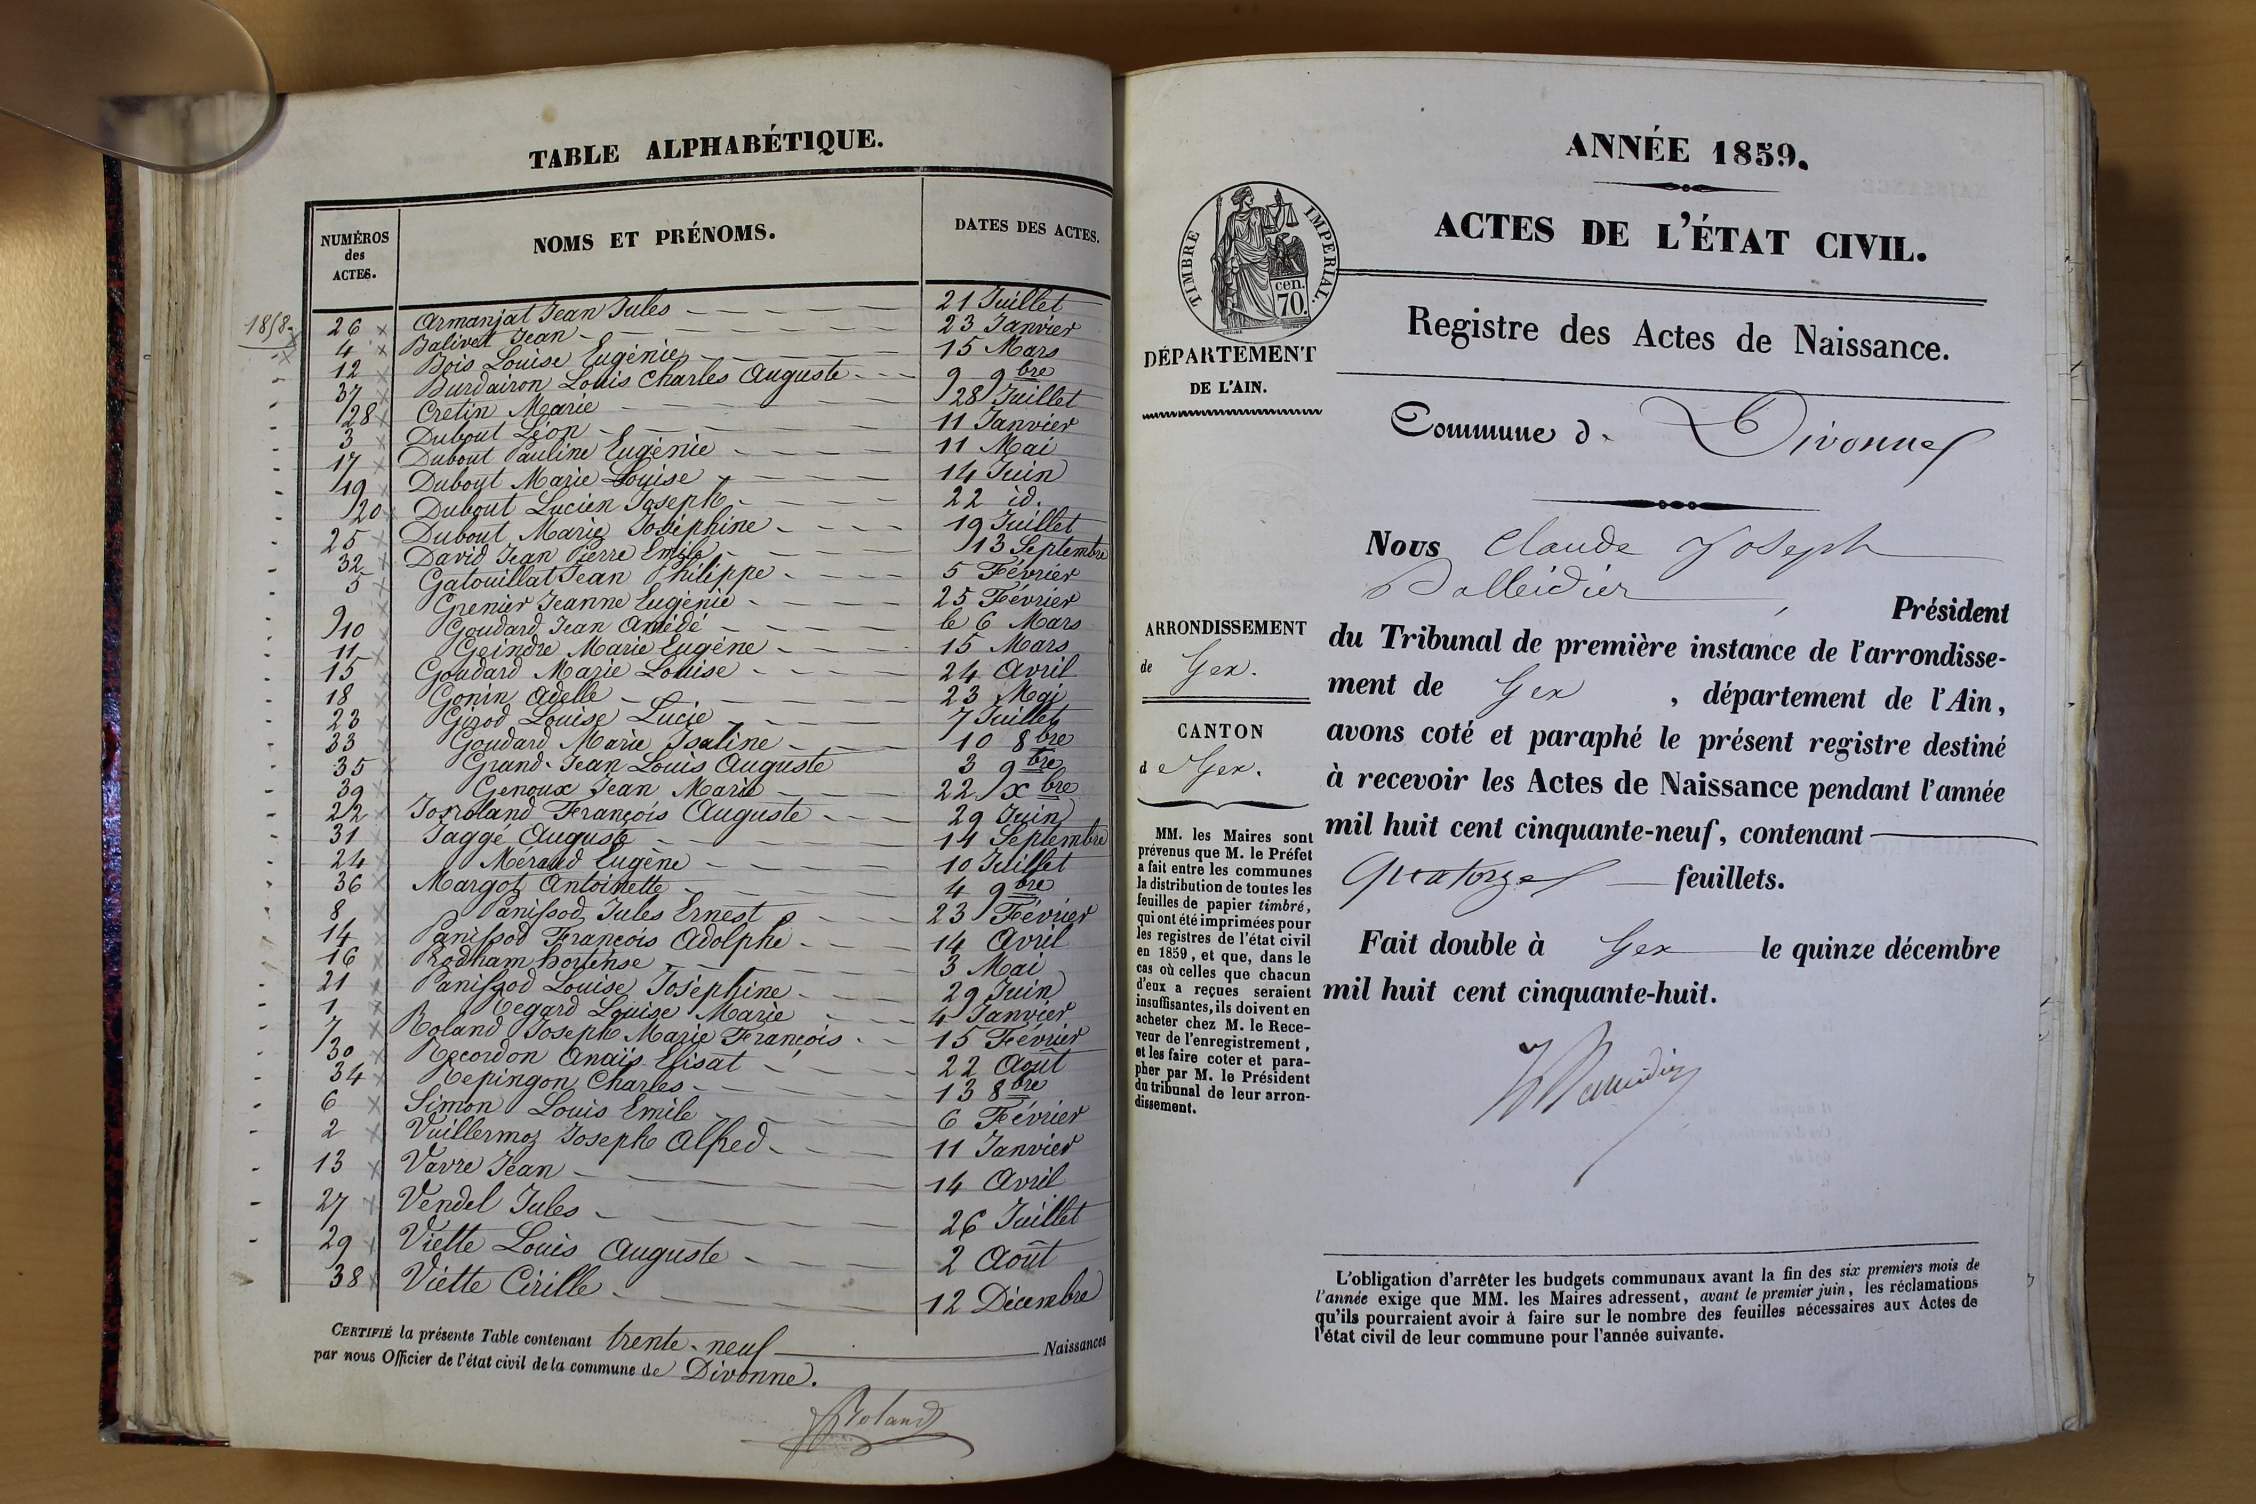 TABLE ALPHABÉTIQUE.
NUMÉROS des ACTES. NOMS ET PRÉNOMS. DATES DES ACTES.
1858
26 Armanjat Jean Jules 21 Juillet
4 Balivet Jean 23 Janvier
12 Bois Louise Eugénie 15 Mars
37 Burdairon Louis Charles Auguste 9 9bre
28 Cretin Marie 28 Juillet
3 Dubout Léon 11 Janvier
17 Dubout Pauline Eugénie 11 Mai
19 Dubout Marie Louise 14 Juin
20 Dubout Lucien Joseph 22 id.
25 Dubout Marie Joséphine 19 Juillet
32 David Jean Pierre Emile 13 Septembre
5 Gatouillat Jean Philippe 5 Février
9 Grenier Jeanne Eugénie 25 Février
10 Goudard Jean Amédé le 6 Mars
11 Geindre Marie Eugène 15 Mars
15 Goudard Marie Louise 24 Avril
18 Gonin Adelle 23 Mai
23 Girod Louise Lucie 7 Juillet
33 Goudard Marie Isaline 10 8bre
35 Grand-Jean Louis Auguste 3 9bre
39 Genoux Jean Marie 22 Xbre
22 François Auguste 29 Juin
31 Jaggé Auguste 14 Septembre
24 Meraud Eugène 10 Juillet
36 Margot Antoinette 4 9bre
8 Panissod Jules Ernest 23 Février
14 Panissod François Adolphe 14 Avril
16 Rodham Hortense 3 Mai
21 Panissod Louise Joséphine 29 Juin
1 Regard Louise Marie 4 Janvier
7 Roland Joseph Marie François 15 Février
30 Recordon Anaïs Elisat 22 Août
34 Repingon Charles 13 8bre
6 Simon Louis Emile 6 Février
2 Vuillermoz Joseph Alfred 11 Janvier
13 Vavre Jean 14 Avril
27 Vendel Jules 26 Juillet
29 Viette Louis Auguste 2 Août
38 Viette Cirille 12 Décembre
CERTIFIÉ la présente Table contenant trente-neuf Naissances
par nous Officier de l'état civil de la commune de Divonne.
Roland
ANNÉE 1859.
ACTES DE L'ÉTAT CIVIL.
TIMBRE IMPERIAL.
cen.
70.
Registre des Actes de Naissance.
DÉPARTEMENT
DE L'AIN.
Commune d. Divonne
Nous Claude Joseph
Président
du Tribunal de première instance de l'arrondisse-
ment de Gex , département de l'Ain,
avons coté et paraphé le présent registre destiné
à recevoir les Actes de Naissance pendant l'année
mil huit cent cinquante-neuf, contenant
Quatorze feuillets.
Fait double à Gex le quinze décembre
mil huit cent cinquante-huit.
ARRONDISSEMENT
de Gex.
CANTON
de Gex.
MM. les Maires sont
prévenus que M. le Préfet
a fait entre les communes
la distribution de toutes les
feuilles de papier timbré,
qui ont été imprimées pour
les registres de l'état civil
en 1859, et que, dans le
cas où celles que chacun
d'eux a reçues seraient
insuffisantes, ils doivent en
acheter chez M. le Rece-
veur de l'enregistrement,
et les faire coter et para-
pher par M. le Président
du tribunal de leur arron-
dissement.
L'obligation d'arrêter les budgets communaux avant la fin des six premiers mois de
l'année exige que MM. les Maires adressent, avant le premier juin, les réclamations
qu'ils pourraient avoir à faire sur le nombre des feuilles nécessaires aux Actes de
l'état civil de leur commune pour l'année suivante.